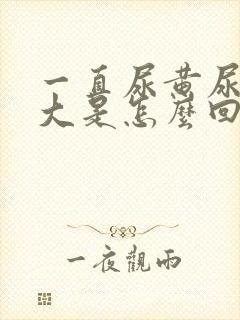 一直尿黄尿
大是怎麼回
一夜觀雨